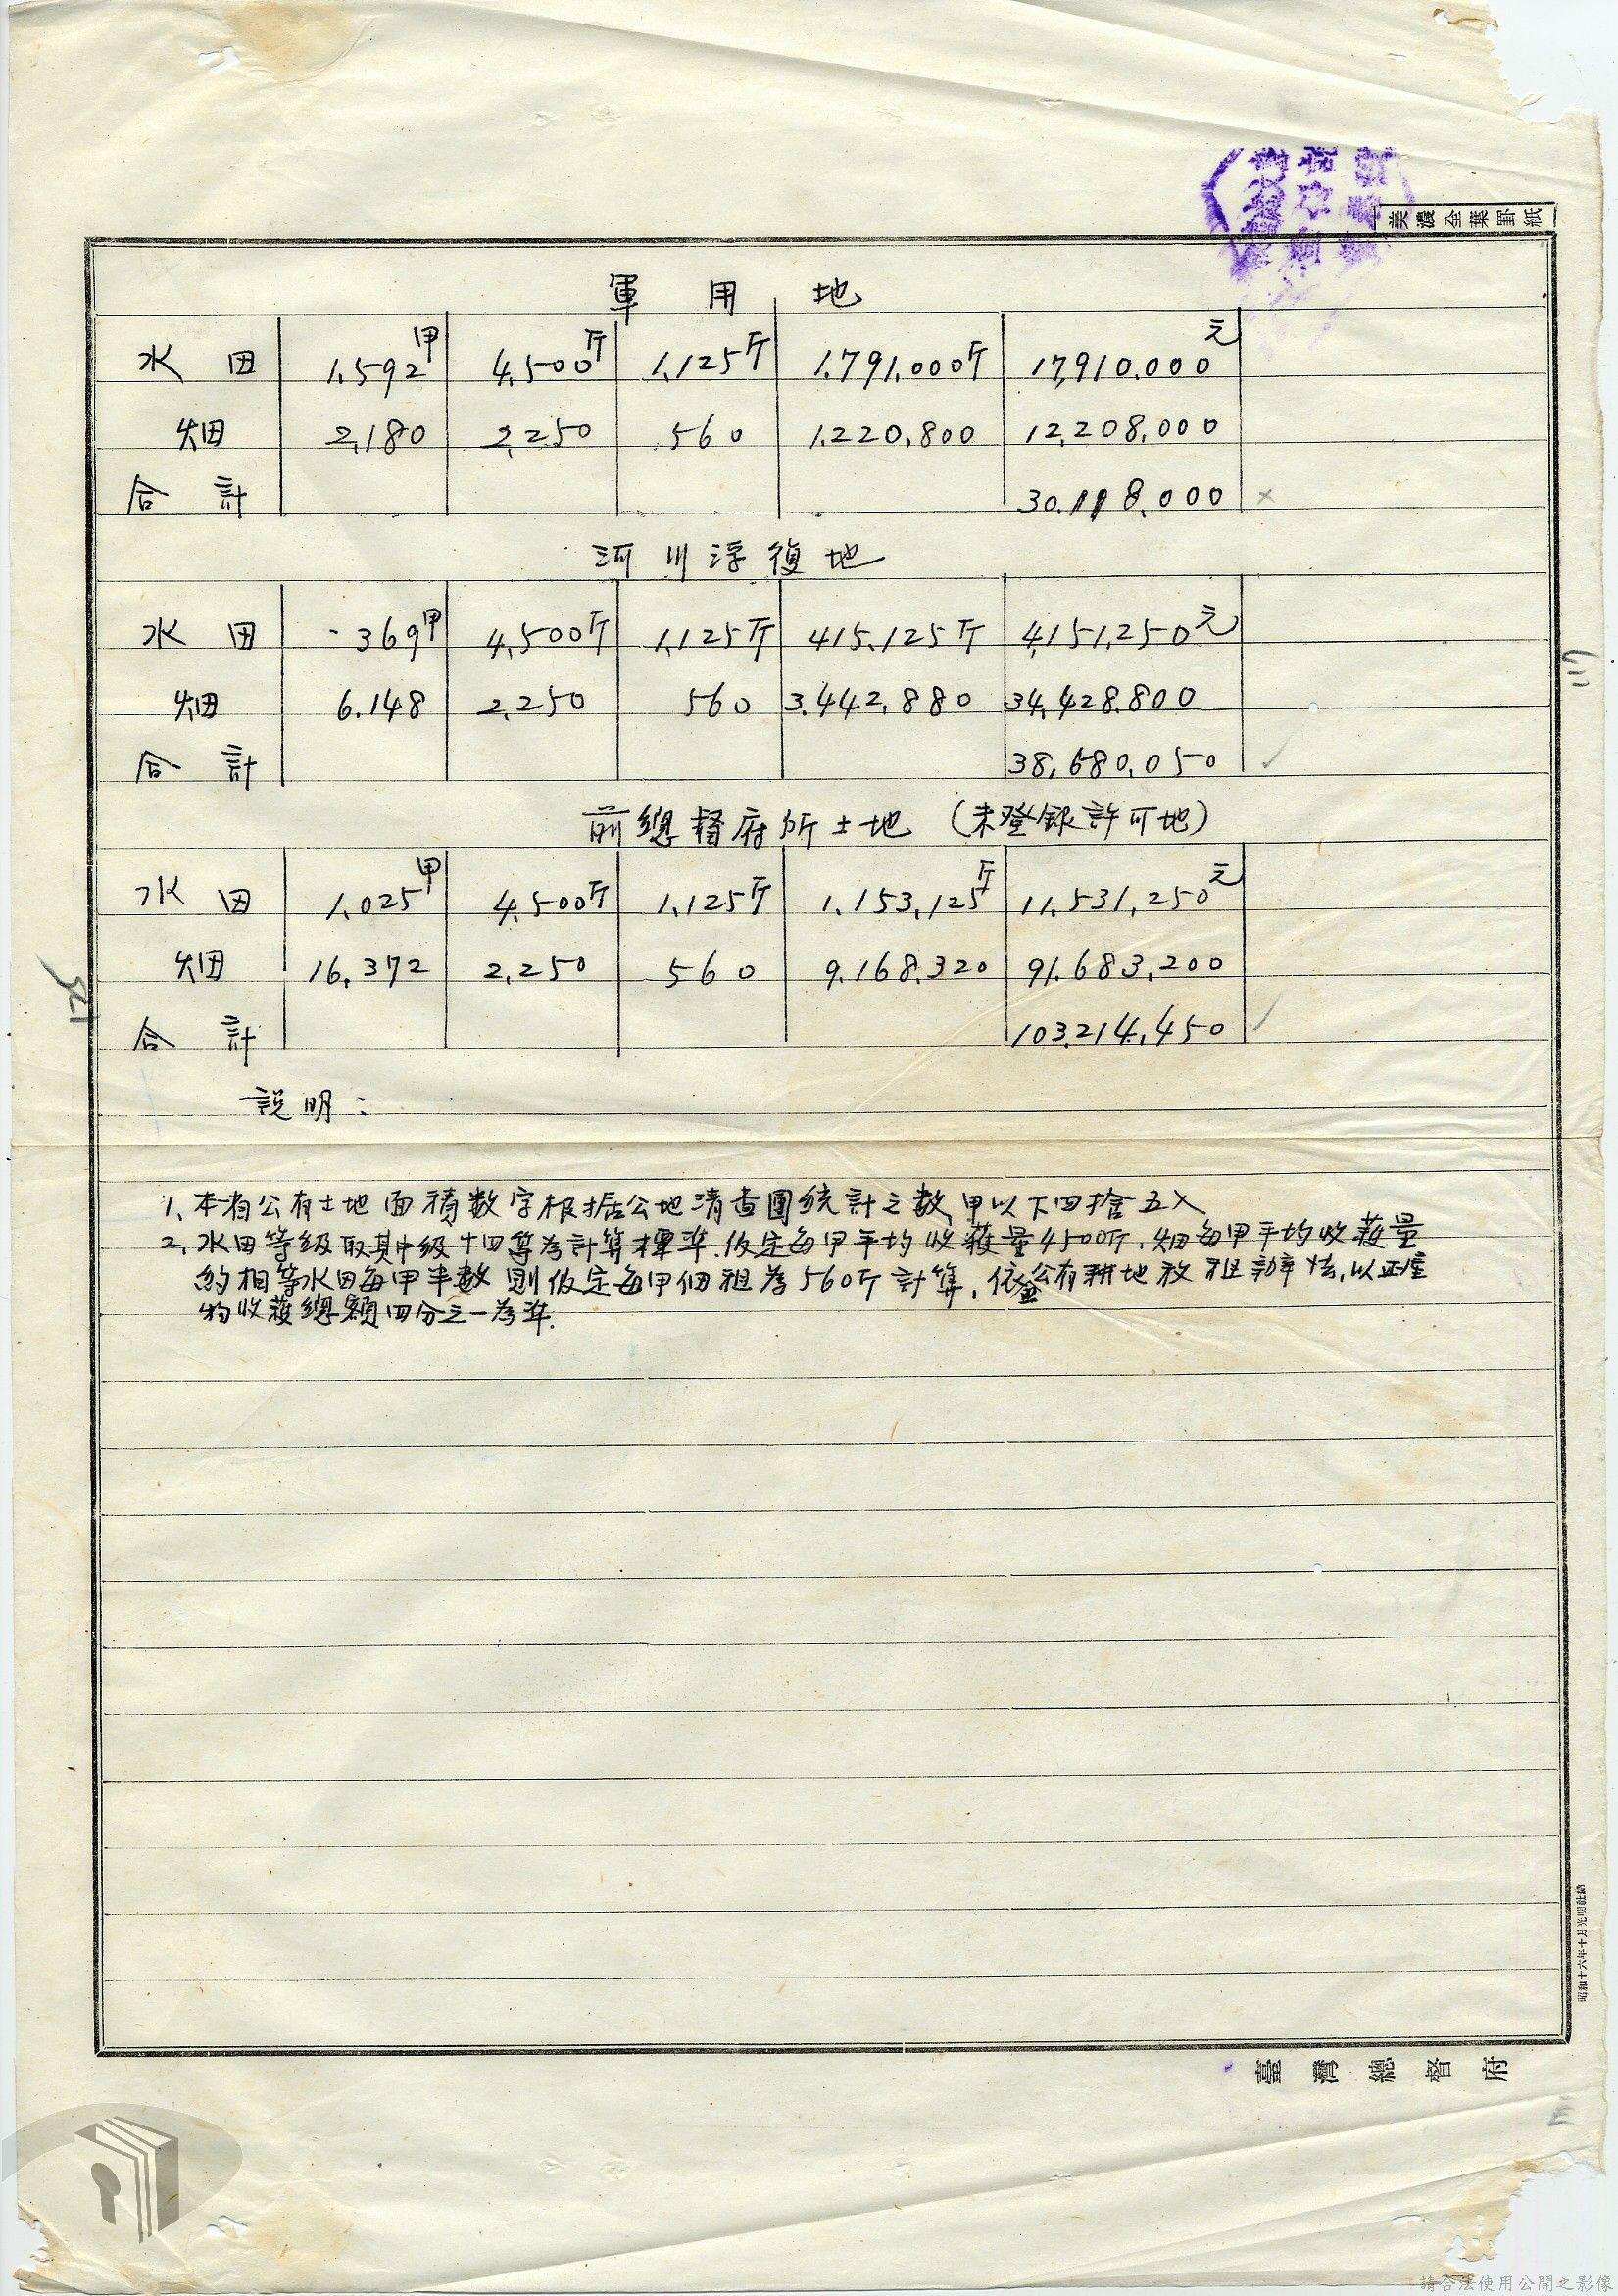 美濃全葉罫紙
軍用地
水田 1.592甲 4.500斤 1.125斤 1.791.000斤 17,910.000元
畑 2,180 2,250 560 1.220,800 12,208,000
合計 30.118,000 ×
河川浮復地
水田 369甲 4,500斤 1,125斤 415.125斤 4,151,250元
畑 6.148 2,250 560 3.442,880 34,428.800
合計 38,680,050 ✓
前總督府所土地（未登録許可地）
水田 1.025甲 4.500斤 1.125斤 1.153,125斤 11,531,250元
畑 16.372 2,250 560 9.168.320 91.683,200
合計 103,214,450 ✓
説明：
1、本省公有土地面積数字根据公地清查團統計之数，甲以下四捨五入
2、水田等級取其中級十四等為計算標準，仮定每甲平均收蕿量4500斤，畑每甲平均收蕿量
約相等水田每甲半數則仮定每甲佃租為560斤計算，依公有耕地放租辦法，以正產
物收蕿總額四分之一為準.
昭和十六年十月光明社納
臺灣總督府
請合法使用公開之影像